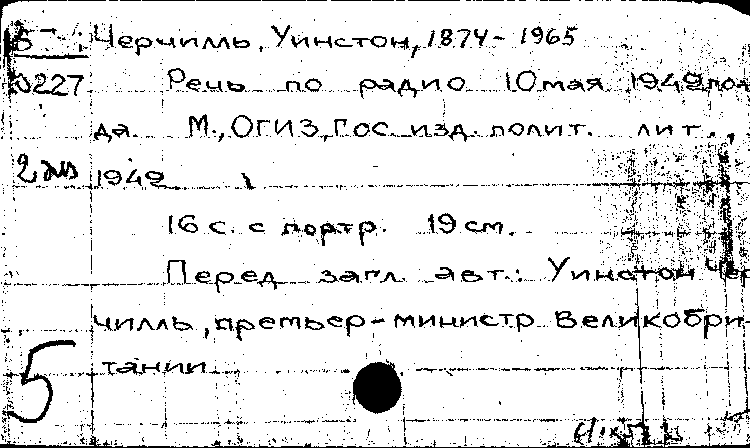 Б- Черчилль, Уинстон, 1874-1965
0227 Речь по радио 10 мая 1942 го
да. М., ОГИЗ, Гос. изд. полит. лит.,
2 экз 1942
16 с. с портр. 19 см.
Перед загл. авт.: Уинстон Чер
чилль, премьер-министр Великобри-
5 тании